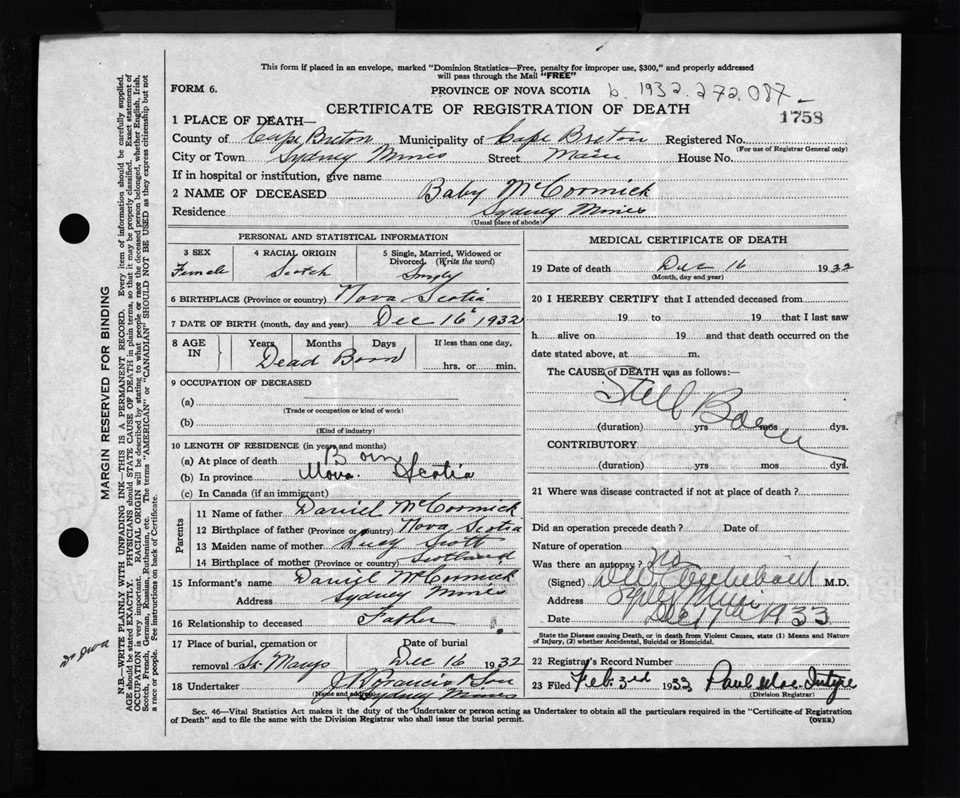 This form if placed in an envelope, marked "Dominion Statistics—Free, penalty for improper use, $300," and properly addressed
will pass through the Mail "FREE"
FORM 6.
PROVINCE OF NOVA SCOTIA
b. 1932. 272,087 —
CERTIFICATE OF REGISTRATION OF DEATH
1758
1 PLACE OF DEATH—
County of Cape Breton Municipality of Cape Breton Registered No.
(For use of Registrar General only)
City or Town Sydney Mines Street Main House No.
If in hospital or institution, give name
2 NAME OF DECEASED Baby McCormick
Residence Sydney Mines
(Usual place of abode)
PERSONAL AND STATISTICAL INFORMATION
3 SEX Female
4 RACIAL ORIGIN Scotch
5 Single, Married, Widowed or Divorced (Write the word) Single
6 BIRTHPLACE (Province or country) Nova Scotia
7 DATE OF BIRTH (month, day and year) Dec 16 1932
8 AGE IN Years Months Days If less than one day,
Dead Born hrs. or min.
9 OCCUPATION OF DECEASED
(a)
(Trade or occupation or kind of work)
(b)
(Kind of industry)
10 LENGTH OF RESIDENCE (in years and months)
(a) At place of death Born
(b) In province Nova Scotia
(c) In Canada (if an immigrant)
Parents
11 Name of father Daniel McCormick
12 Birthplace of father (Province or country) Nova Scotia
13 Maiden name of mother Lucy Scott
14 Birthplace of mother (Province or country) Scotland
15 Informant's name Daniel McCormick
Address Sydney Mines
16 Relationship to deceased Father
17 Place of burial, cremation or Date of burial
removal St. Marys Dec 16 1932
18 Undertaker J R Francis & Son
(Name and address) Sydney Mines
MEDICAL CERTIFICATE OF DEATH
19 Date of death Dec 16 1932
(Month, day and year)
20 I HEREBY CERTIFY that I attended deceased from
19 to 19 that I last saw
h alive on 19 and that death occurred on the
date stated above, at m.
The CAUSE of DEATH was as follows:—
Still Born
(duration) yrs mos dys.
CONTRIBUTORY
(duration) yrs mos dys.
21 Where was disease contracted if not at place of death?
Did an operation precede death? Date of
Nature of operation
Was there an autopsy? No
(Signed) M.D.
Address Syd Mines
Date Dec 17th 1933
State the Disease causing Death, or in death from Violent Causes, state (1) Means and Nature
of Injury, (2) whether Accidental, Suicidal or Homicidal.
22 Registrar's Record Number
23 Filed Feb. 3rd 1933 Paul MacIntyre
(Division Registrar)
Sec. 46—Vital Statistics Act makes it the duty of the Undertaker or person acting as Undertaker to obtain all the particulars required in the "Certificate of Registration
of Death" and to file the same with the Division Registrar who shall issue the burial permit.
(OVER)
MARGIN RESERVED FOR BINDING
N.B.—WRITE PLAINLY WITH UNFADING INK—THIS IS A PERMANENT RECORD. Every item of information should be carefully supplied.
AGE should be stated EXACTLY. PHYSICIANS should STATE CAUSE OF DEATH in plain terms, so that it may be properly classified. Exact statement of
OCCUPATION is very important. RACIAL ORIGIN will be described by stating to what people or race the deceased person belonged, whether English, Irish,
Scotch, French, German, Russian, Ruthenian, etc. The terms "AMERICAN" or "CANADIAN" SHOULD NOT BE USED as they express citizenship but not
a race or people. See instructions on back of Certificate.